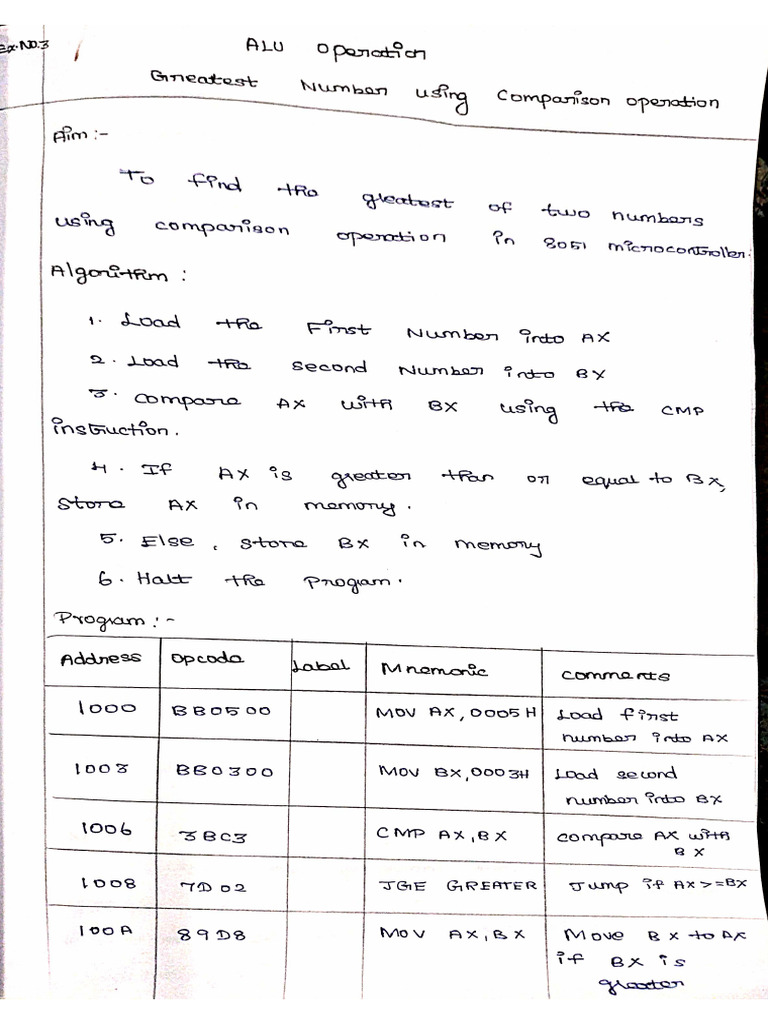 Ex.No.3
ALU Operation
Greatest Number using Comparison operation
Aim :-
To find the greatest of two numbers
using comparison operation in 8051 microcontroller.
Algorithm :
1. Load the First Number into AX
2. Load the second Number into BX
3. Compare AX with BX using the CMP
instruction.
4. If AX is greater than or equal to BX,
store AX in memory.
5. Else, store BX in memory
6. Halt the Program.
Program :-
Address Opcode Label Mnemonic comments
1000 BB0500 MOV AX, 0005H Load first
number into AX
1003 BB0300 MOV BX, 0003H Load second
number into BX
1006 3BC3 CMP AX, BX compare AX with
BX
1008 7D02 JGE GREATER Jump if AX>=BX
100A 89D8 MOV AX, BX Move BX to AX
if BX is
greater